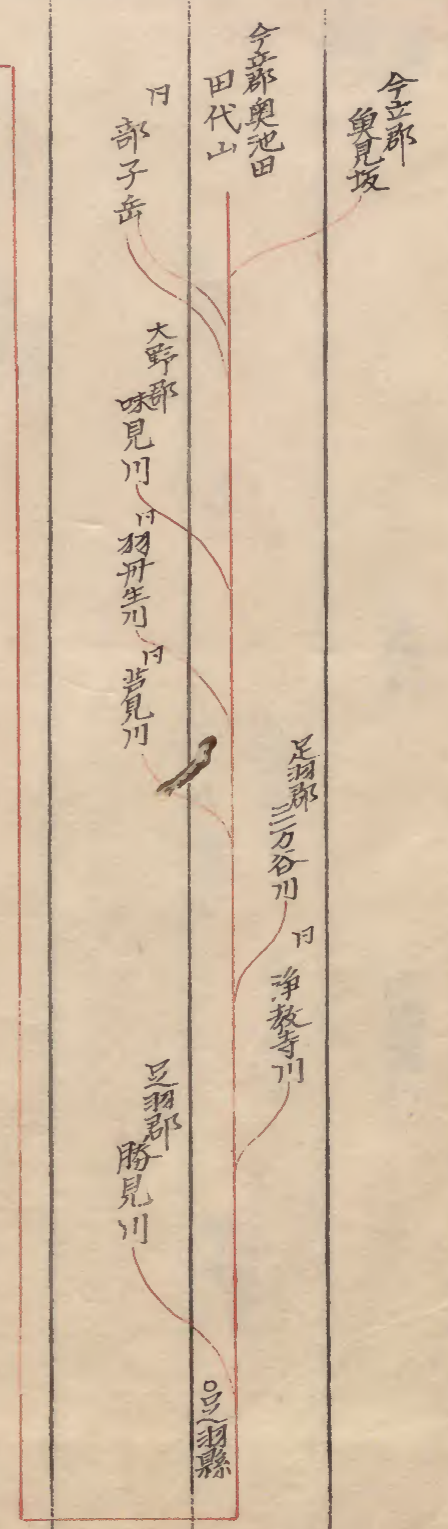 今立郡
魚見坂
今立郡奥池田
田代山
同
部子岳
大野郡
味見川
同
羽丹生川
同
芦見川
足羽郡
三万谷川
同
浄教寺川
足羽郡
勝見川
足羽縣